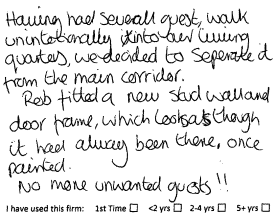 Having had severall guest, walk
unintentionally into our living
quarters, we decided to seperate it
from the main corridor.
Rob fitted a new stud wall and
door frame, which looks as though
it had alway been there, once
painted.
No more unwanted guests!!
I have used this firm: 1st Time <2 yrs 2-4 yrs 5+ yrs